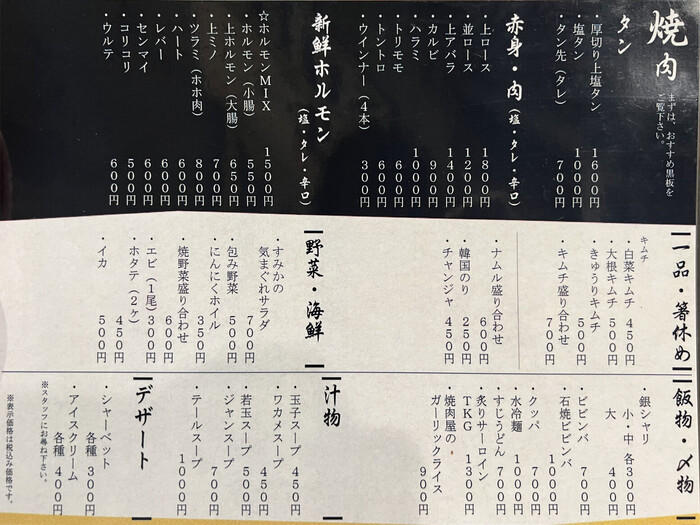 焼肉
まずは、おすすめ黒板を
ご覧下さい。
タン
・厚切り上塩タン 1600円
・塩タン 1000円
・タン先(タレ) 700円
赤身・肉(塩・タレ・辛口)
・上ロース 1800円
・並ロース 1200円
・上アバラ 1400円
・カルビ 900円
・ハラミ 1000円
・トリモモ 600円
・トントロ 600円
・ウインナー(4本) 300円
新鮮ホルモン(塩・タレ・辛口)
☆ホルモンMIX 1500円
・ホルモン(小腸) 550円
・上ホルモン(大腸) 650円
・上ミノ 700円
・ツラミ(ホホ肉) 800円
・ハート 600円
・レバー 600円
・センマイ 600円
・コリコリ 500円
・ウルテ 600円
一品・箸休め
キムチ
・白菜キムチ 450円
・大根キムチ 500円
・きゅうりキムチ 500円
・キムチ盛り合わせ 700円
・ナムル盛り合わせ 600円
・韓国のり 250円
・チャンジャ 450円
野菜・海鮮
・すみかの
気まぐれサラダ 700円
・包み野菜 500円
・にんにくホイル 350円
・焼野菜盛り合わせ 600円
・エビ(1尾) 300円
・ホタテ(2ヶ) 450円
・イカ 500円
飯物・〆物
・銀シャリ
小・中 各300円
大 400円
・ビビンバ 700円
・石焼ビビンバ 1000円
・クッパ 700円
・水冷麺 1000円
・すじうどん 700円
・炙りサーロイン
TKG 1300円
・焼肉屋の
ガーリックライス 900円
汁物
・玉子スープ 450円
・ワカメスープ 450円
・若玉スープ 500円
・ジャンスープ 700円
・テールスープ 1000円
デザート
・シャーベット
各種 300円
・アイスクリーム
各種 400円
※スタッフにお尋ね下さい。
※表示価格は税込み価格です。